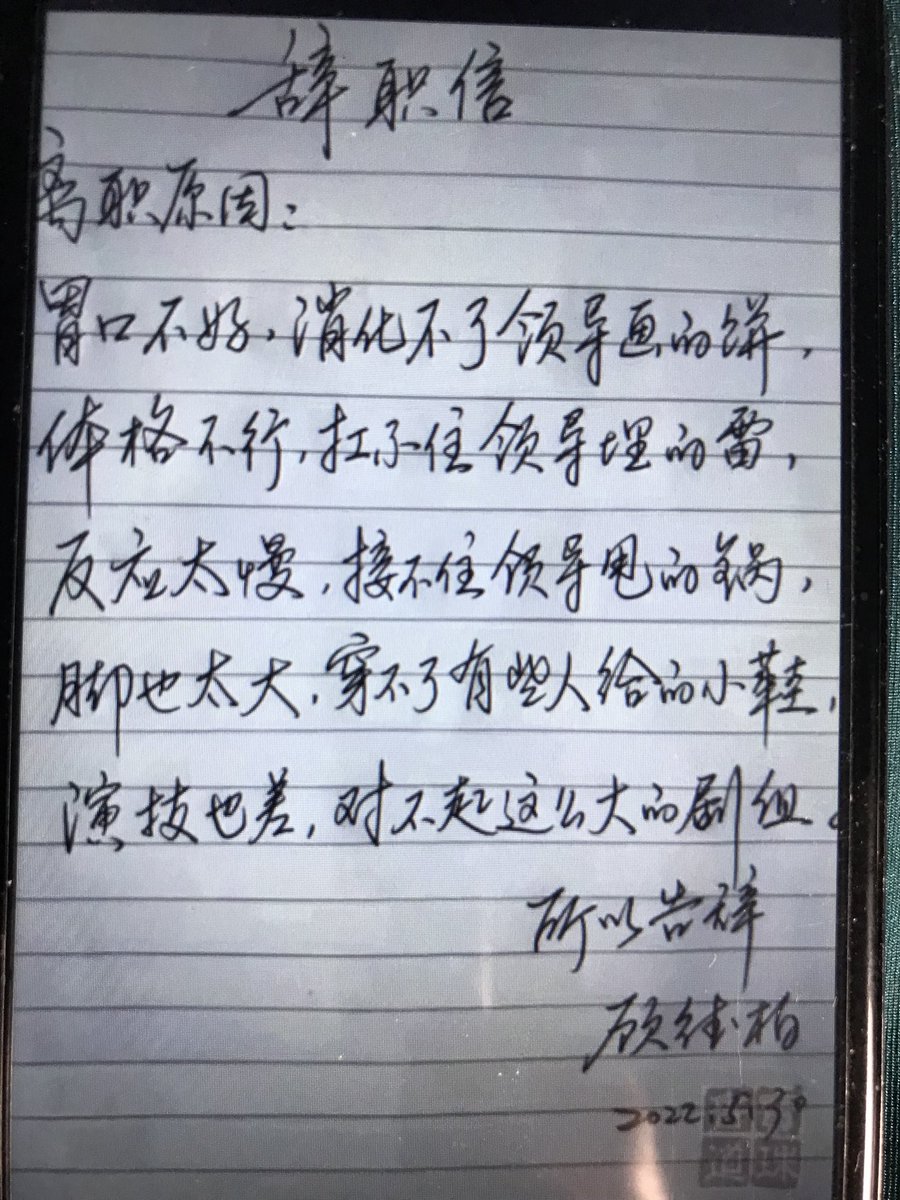 辞职信
离职原因：
胃口不好，消化不了领导画的饼，
体格不行，扛不住领导埋的雷，
反应太慢，接不住领导甩的锅，
脚也太大，穿不了有些人给的小鞋，
演技也差，对不起这么大的剧组。
所以告辞
顾德柏
2022.5.30